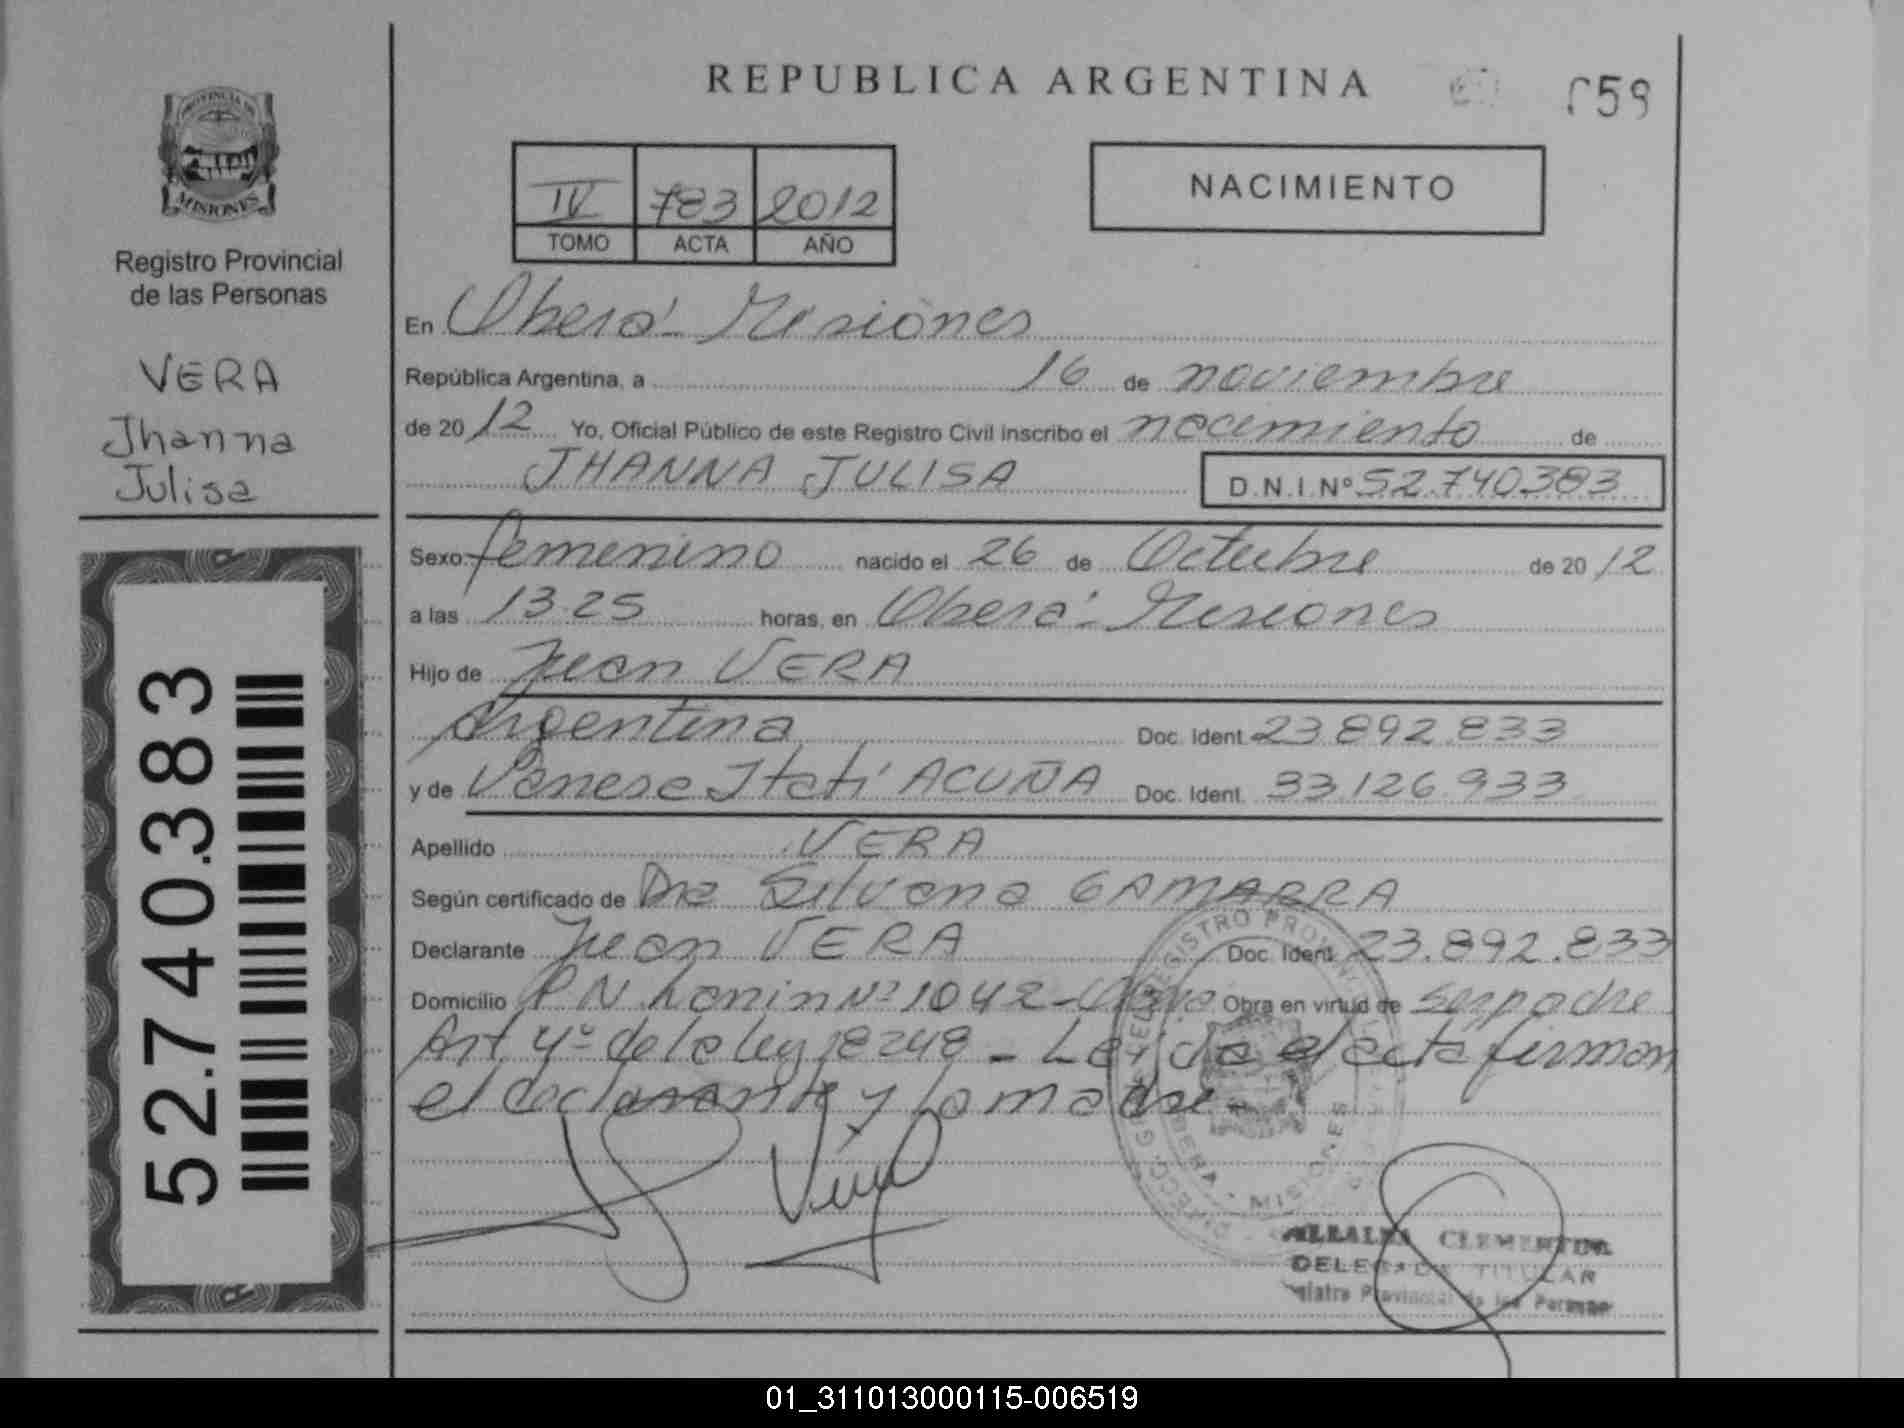 REPUBLICA ARGENTINA
059
PROVINCIA DE
MISIONES
Registro Provincial
de las Personas
VERA
Jhanna
Julisa
IV 783 2012
TOMO ACTA AÑO
NACIMIENTO
En Oberá - Misiones
República Argentina, a 16 de noviembre
de 2012 Yo, Oficial Público de este Registro Civil inscribo el nacimiento de
JHANNA JULISA D.N.I. Nº 52.740.383
Sexo femenino nacido el 26 de Octubre de 2012
a las 13.25 horas, en Oberá - Misiones
Hijo de Juan VERA
Argentina Doc. Ident. 23.892.833
y de Vanesa Itatí ACUÑA Doc. Ident. 33.126.933
Apellido VERA
Según certificado de Dra Silvana GAMARRA
Declarante Juan VERA Doc. Ident. 23.892.833
Domicilio P N Lanin Nº 1042 - Obra en virtud de ser padre
Art. 4º de la ley 18248 - Leída el acta firman
el declarante y la madre
52.740.383
REGISTRO PROV
OBERA - MISIONES
CLEMENTINA
DELEGADA TITULAR
Registro Provincial de las Personas
01_311013000115-006519